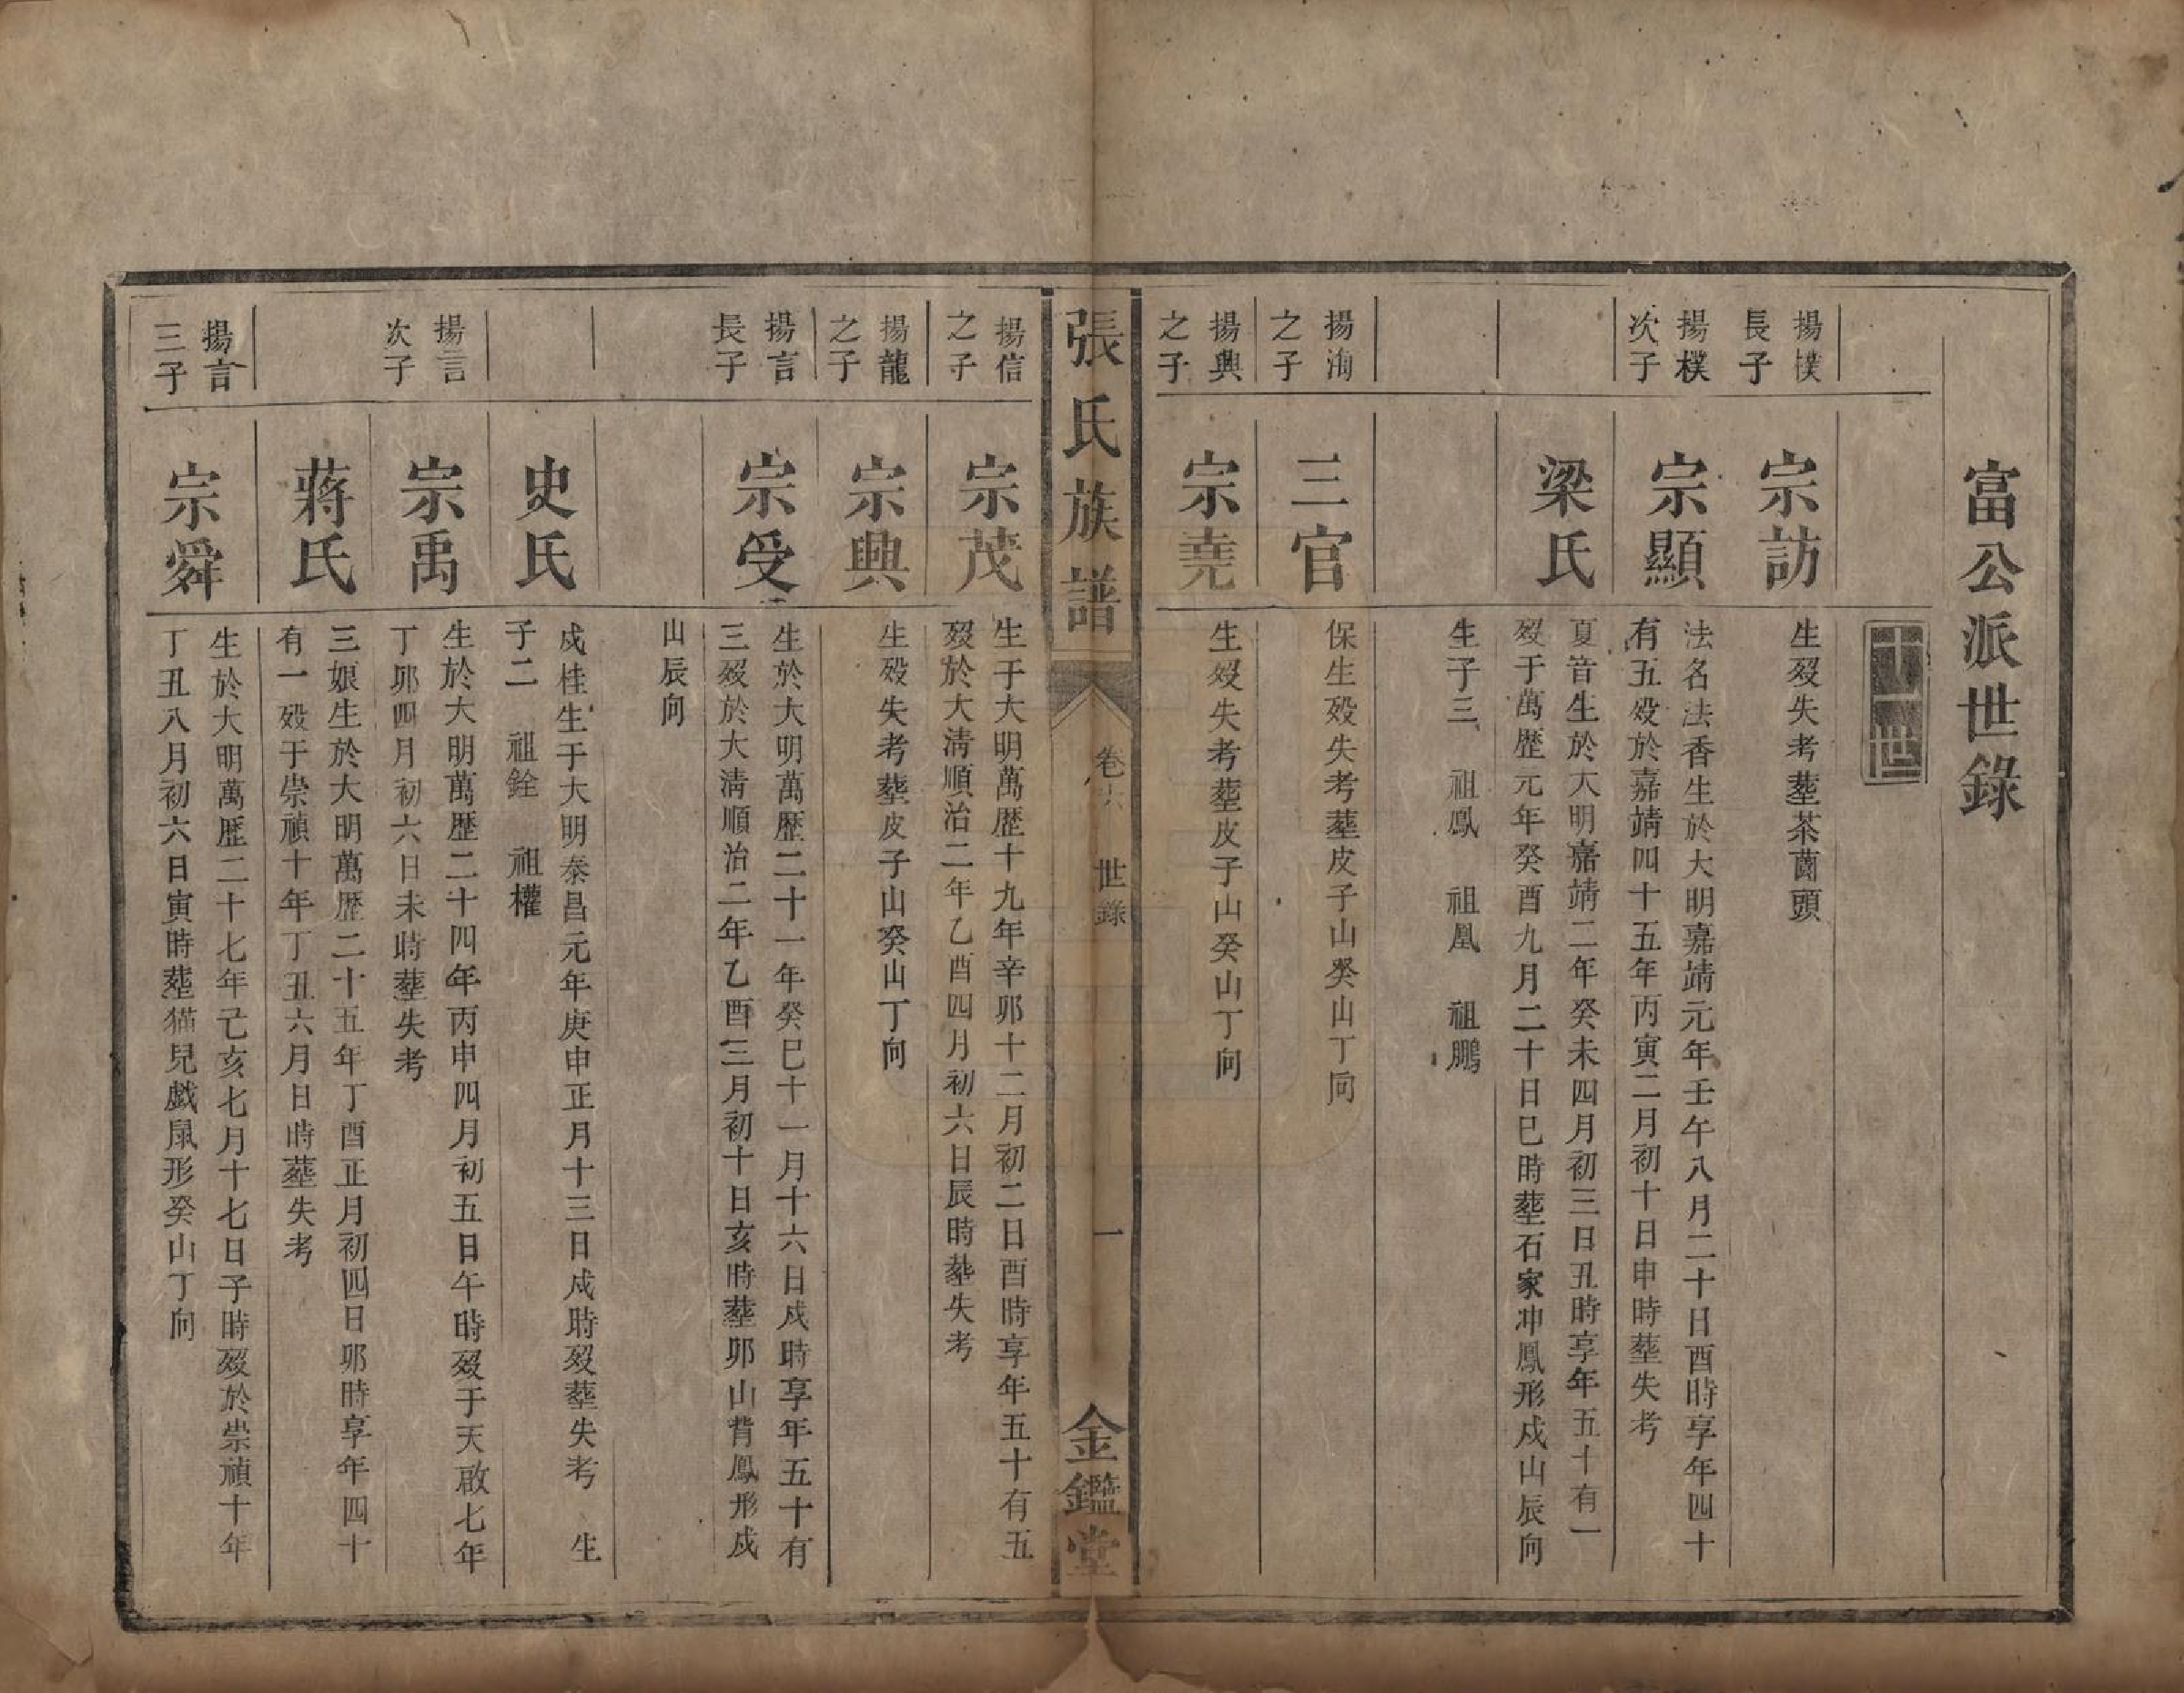 富公派世錄
十一世
揚樸
長子
宗訪
生殁失考塟茶薗頭
揚樸
次子
宗顯
法名法香生於大明嘉靖元年壬午八月二十日酉時享年四十
有五殁於嘉靖四十五年丙寅二月初十日申時塟失考
梁氏
夏音生於大明嘉靖二年癸未四月初三日丑時享年五十有一
殁于萬歷元年癸酉九月二十日巳時塟石家冲鳳形戍山辰向
生子三　祖鳳　祖凰　祖鵬
揚海
之子
三官
保生殁失考塟皮子山癸山丁向
揚興
之子
宗堯
生殁失考塟皮子山癸山丁向
張氏族譜
卷六　世錄　一
金鑑堂
揚信
之子
宗茂
生于大明萬歷十九年辛卯十二月初二日酉時享年五十有五
殁於大清順治二年乙酉四月初六日辰時塟失考
揚龍
之子
宗興
生殁失考塟皮子山癸山丁向
揚言
長子
宗受
生於大明萬歷二十一年癸巳十一月十六日戍時享年五十有
三殁於大清順治二年乙酉三月初十日亥時塟卯山背鳳形戍
山辰向
史氏
戍桂生于大明泰昌元年庚申正月十三日戍時殁塟失考　生
子二　祖銓　祖權
揚言
次子
宗禹
生於大明萬歷二十四年丙申四月初五日午時殁于天啟七年
丁卯四月初六日未時塟失考
蔣氏
三娘生於大明萬歷二十五年丁酉正月初四日卯時享年四十
有一殁于崇禎十年丁丑六月日時塟失考
揚言
三子
宗舜
生於大明萬歷二十七年己亥七月十七日子時殁於崇禎十年
丁丑八月初六日寅時塟猫兒戱鼠形癸山丁向